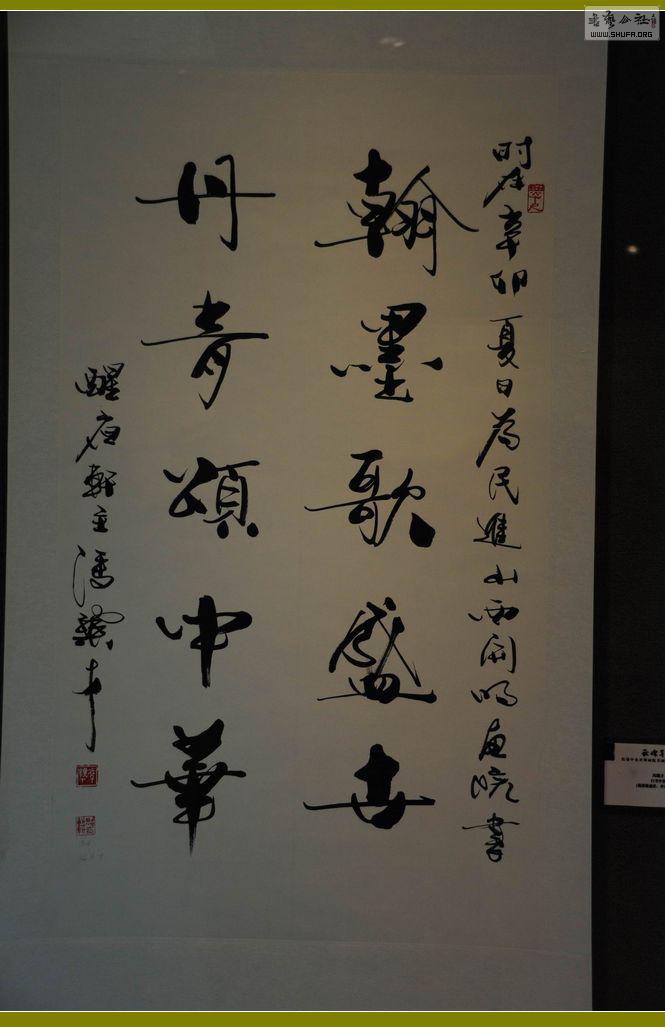 書藝公社
WWW.SHUFA.ORG
时在辛卯夏日為民進山西開明畫院書
翰墨歌盛世
丹青頌中華
醒軒主馮才